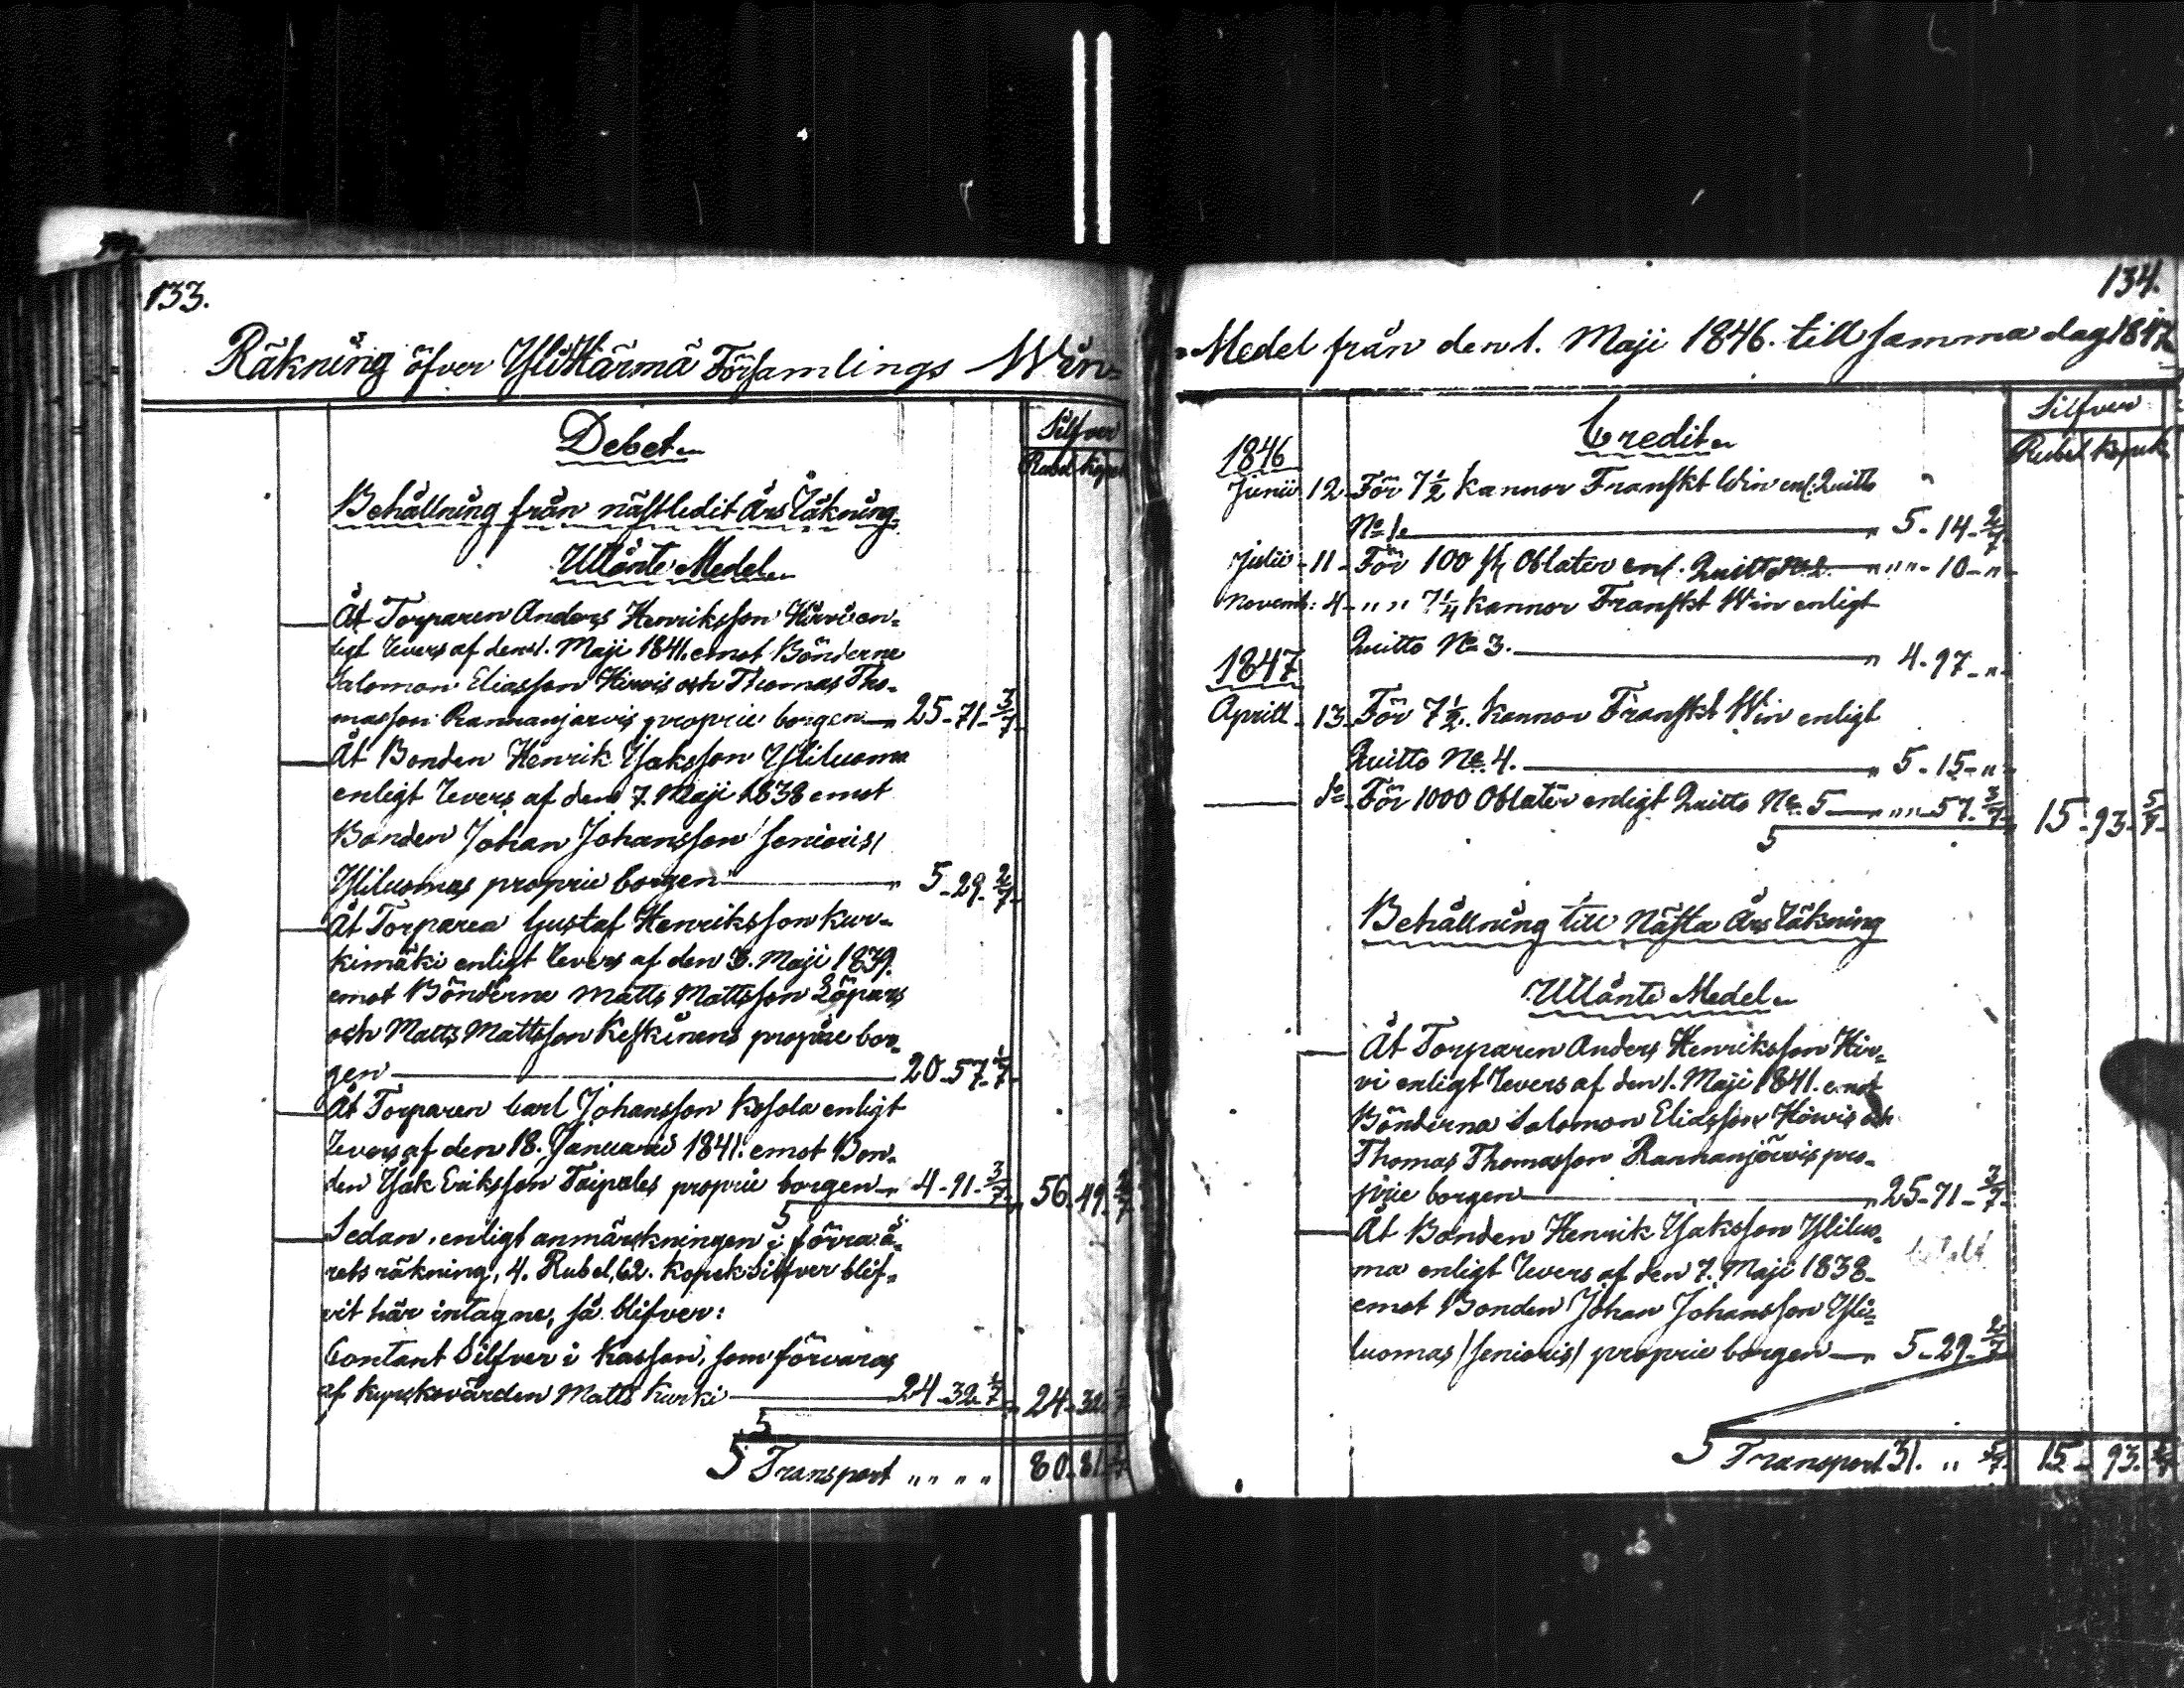 133.
Räkning öfver YliHärmä Församlings Win-
Debet.
Silfver
Rubel Kopek
Behållning från nästledit års Räkning.
Utlånte Medel.
Åt Torparen Anders Henriksson Hirvi en-
ligt Revers af den 1. Maji 1841. emot Bönderne
Salomon Eliasson Hirvis och Thomas Tho-
masson Rannanjärvis proprie borgen — 25-71-3/7
Åt Bonden Henrik Ysaksson Yliluoma
enligt Revers af den 7. Maji 1838 emot
Bonden Johan Johansson /senioris/
Yliluomas proprie borgen — " 5-29-2/7
Åt Torparen Gustaf Henriksson Kur-
kimäki enligt Revers af den 3. Maji 1839.
emot Bönderne Matts Mattsson Löpars
och Matts Mattsson Keskinens proprie bor-
gen — 20-57-1/7
Åt Torparen Carl Johansson Kosola enligt
Revers af den 18. Januarii 1841. emot Bon-
den Ysak Eriksson Taipales proprie borgen " 4-91-3/7 56.49.2/7
Sedan, enligt anmärkningen i förra å-
rets räkning, 4. Rubel, 62. Kopek Silfver blif-
vit här intagne, så blifver:
Contant Silfver i Kassan, som förvaras
af Kyrkovärden Matts Kurki — 24-32-1/7 24-32-1/7
S Transport " " " " 80.81.3/7
134.
Medel från den 1. Maji 1846. till samma dag 1847.
Credit.
Silfver
Rubel Kopek
1846
Junii 12 För 7 1/2 Kannor Franskt Win enl. Quitto
No 1. — " 5-14-2/7
Julii - 11 - För 100 st Oblater enl. Quitto No 2. — " " " - 10 - "
Novemb: 4 - " " 7 1/4 Kannor Franskt Win enligt
Quitto No 3. — " 4-97 - "
1847
Aprill - 13 För 7 1/2. Kannor Franskt Win enligt
Quitto No 4. — " 5-15 - "
do För 1000 Oblater enligt Quitto No 5 — " " " 57-3/7 15-93-5/7
Behållning till Nästa års Räkning
Utlånte Medel.
Åt Torparen Anders Henriksson Hir-
vi enligt Revers af den 1. Maji 1841. emot
Bönderna Salomon Eliasson Hirvis och
Thomas Thomasson Rannanjärvis pro-
prie borgen — " 25-71-3/7
Åt Bonden Henrik Ysaksson Yliluo-
ma enligt Revers af den 7. Maji 1838. betalt
emot Bonden Johan Johansson Yli-
luomas /senioris/ proprie borgen — " 5-29-2/7
S Transport 31. " 5/7 15-93.5/7